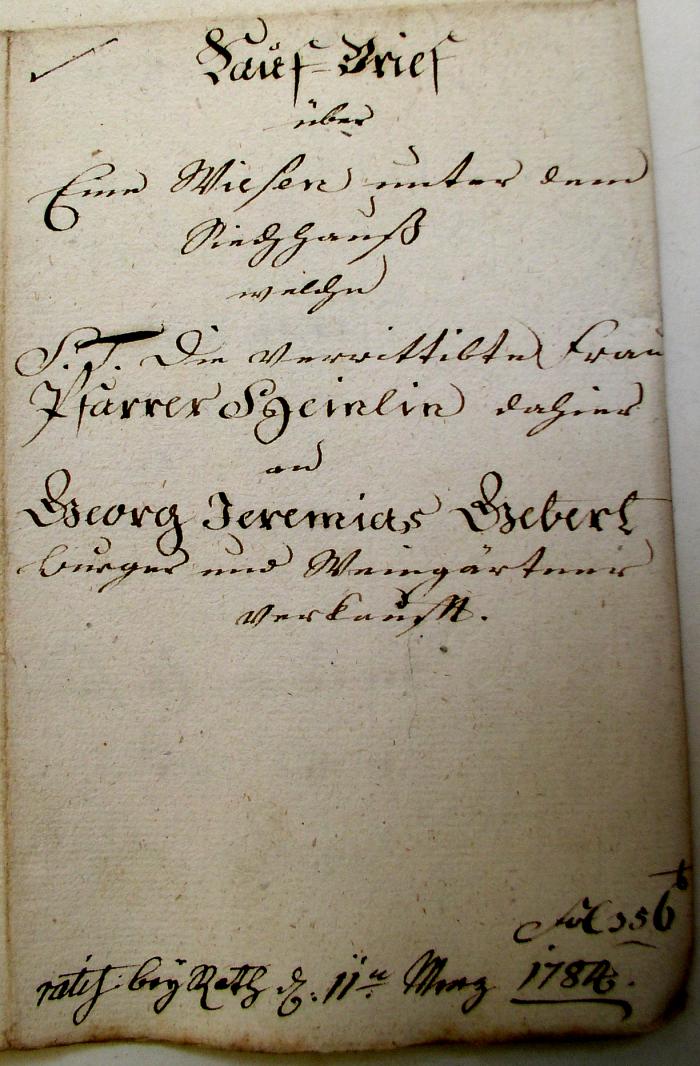 Kauf-Brief
über
Eine Wiesen unter dem
Siechhauß
welche
S. T. Die verwittibte Frau
Pfarrer Heinlin dahier
an
Georg Jeremias Gebert
burger und Weingärtner
verkaufft.
Fol 356 b
ratif. bey Rath d. 11ten Merz 1784.